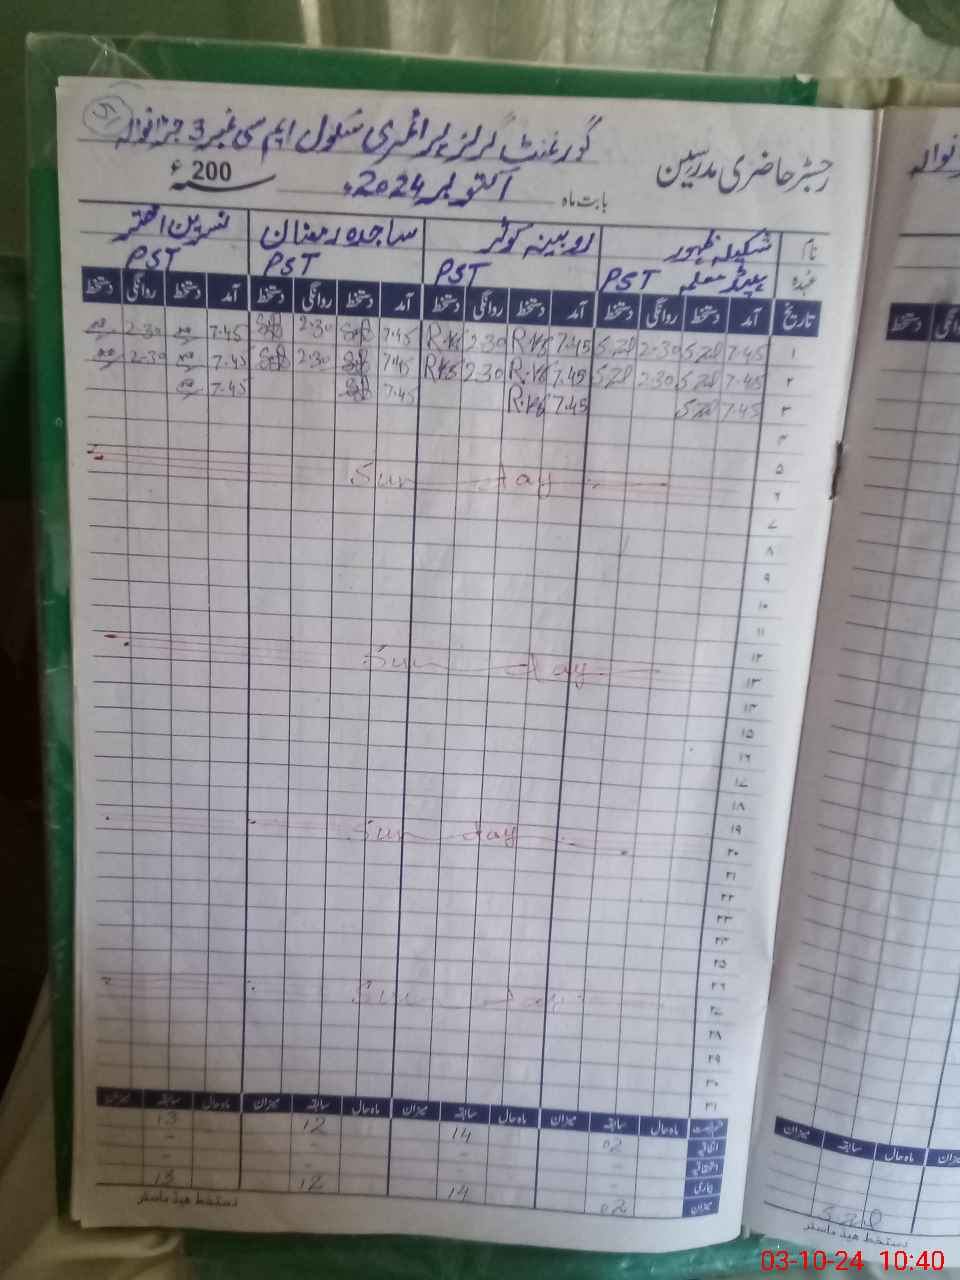 گورنمنٹ گرلز پرائمری سکول ایم سی نمبر 3 جڑانوالہ
رجسٹر حاضری مدرسین
بابت ماہ اکتوبر 2024ء 200ء
نام شکیلہ ظہور روبینہ کوثر ساجدہ رمضان نسرین اختر
عہدہ ہیڈ معلمہ PST PST PST PST
تاریخ آمد دستخط روانگی دستخط آمد دستخط روانگی دستخط آمد دستخط روانگی دستخط آمد دستخط روانگی دستخط
۱ 7.45 2.30 7.45 2.30 7.45 2.30 7.45 2.30
۲ 7.45 2.30 7.45 2.30 7.45 2.30 7.45 2.30
۳ 7.45 7.45 7.45 7.45
۴
۵
Sunday
۶
۷
۸
۹
۱۰
۱۱
۱۲
Sunday
۱۳
۱۴
۱۵
۱۶
۱۷
۱۸
۱۹
Sunday
۲۰
۲۱
۲۲
۲۳
۲۴
۲۵
۲۶
Sunday
۲۷
۲۸
۲۹
۳۰
۳۱
رخصت ماہ حال سابقہ میزان ماہ حال سابقہ میزان ماہ حال سابقہ میزان ماہ حال سابقہ میزان
اتفاقیہ 02 14 12 13
استحقاقیہ - - - -
بیماری - - - -
میزان 02 14 12 13
دستخط ہیڈ ماسٹر
دستخط
میزان سابقہ ماہ حال میزان
دستخط ہیڈ ماسٹر
03-10-24 10:40